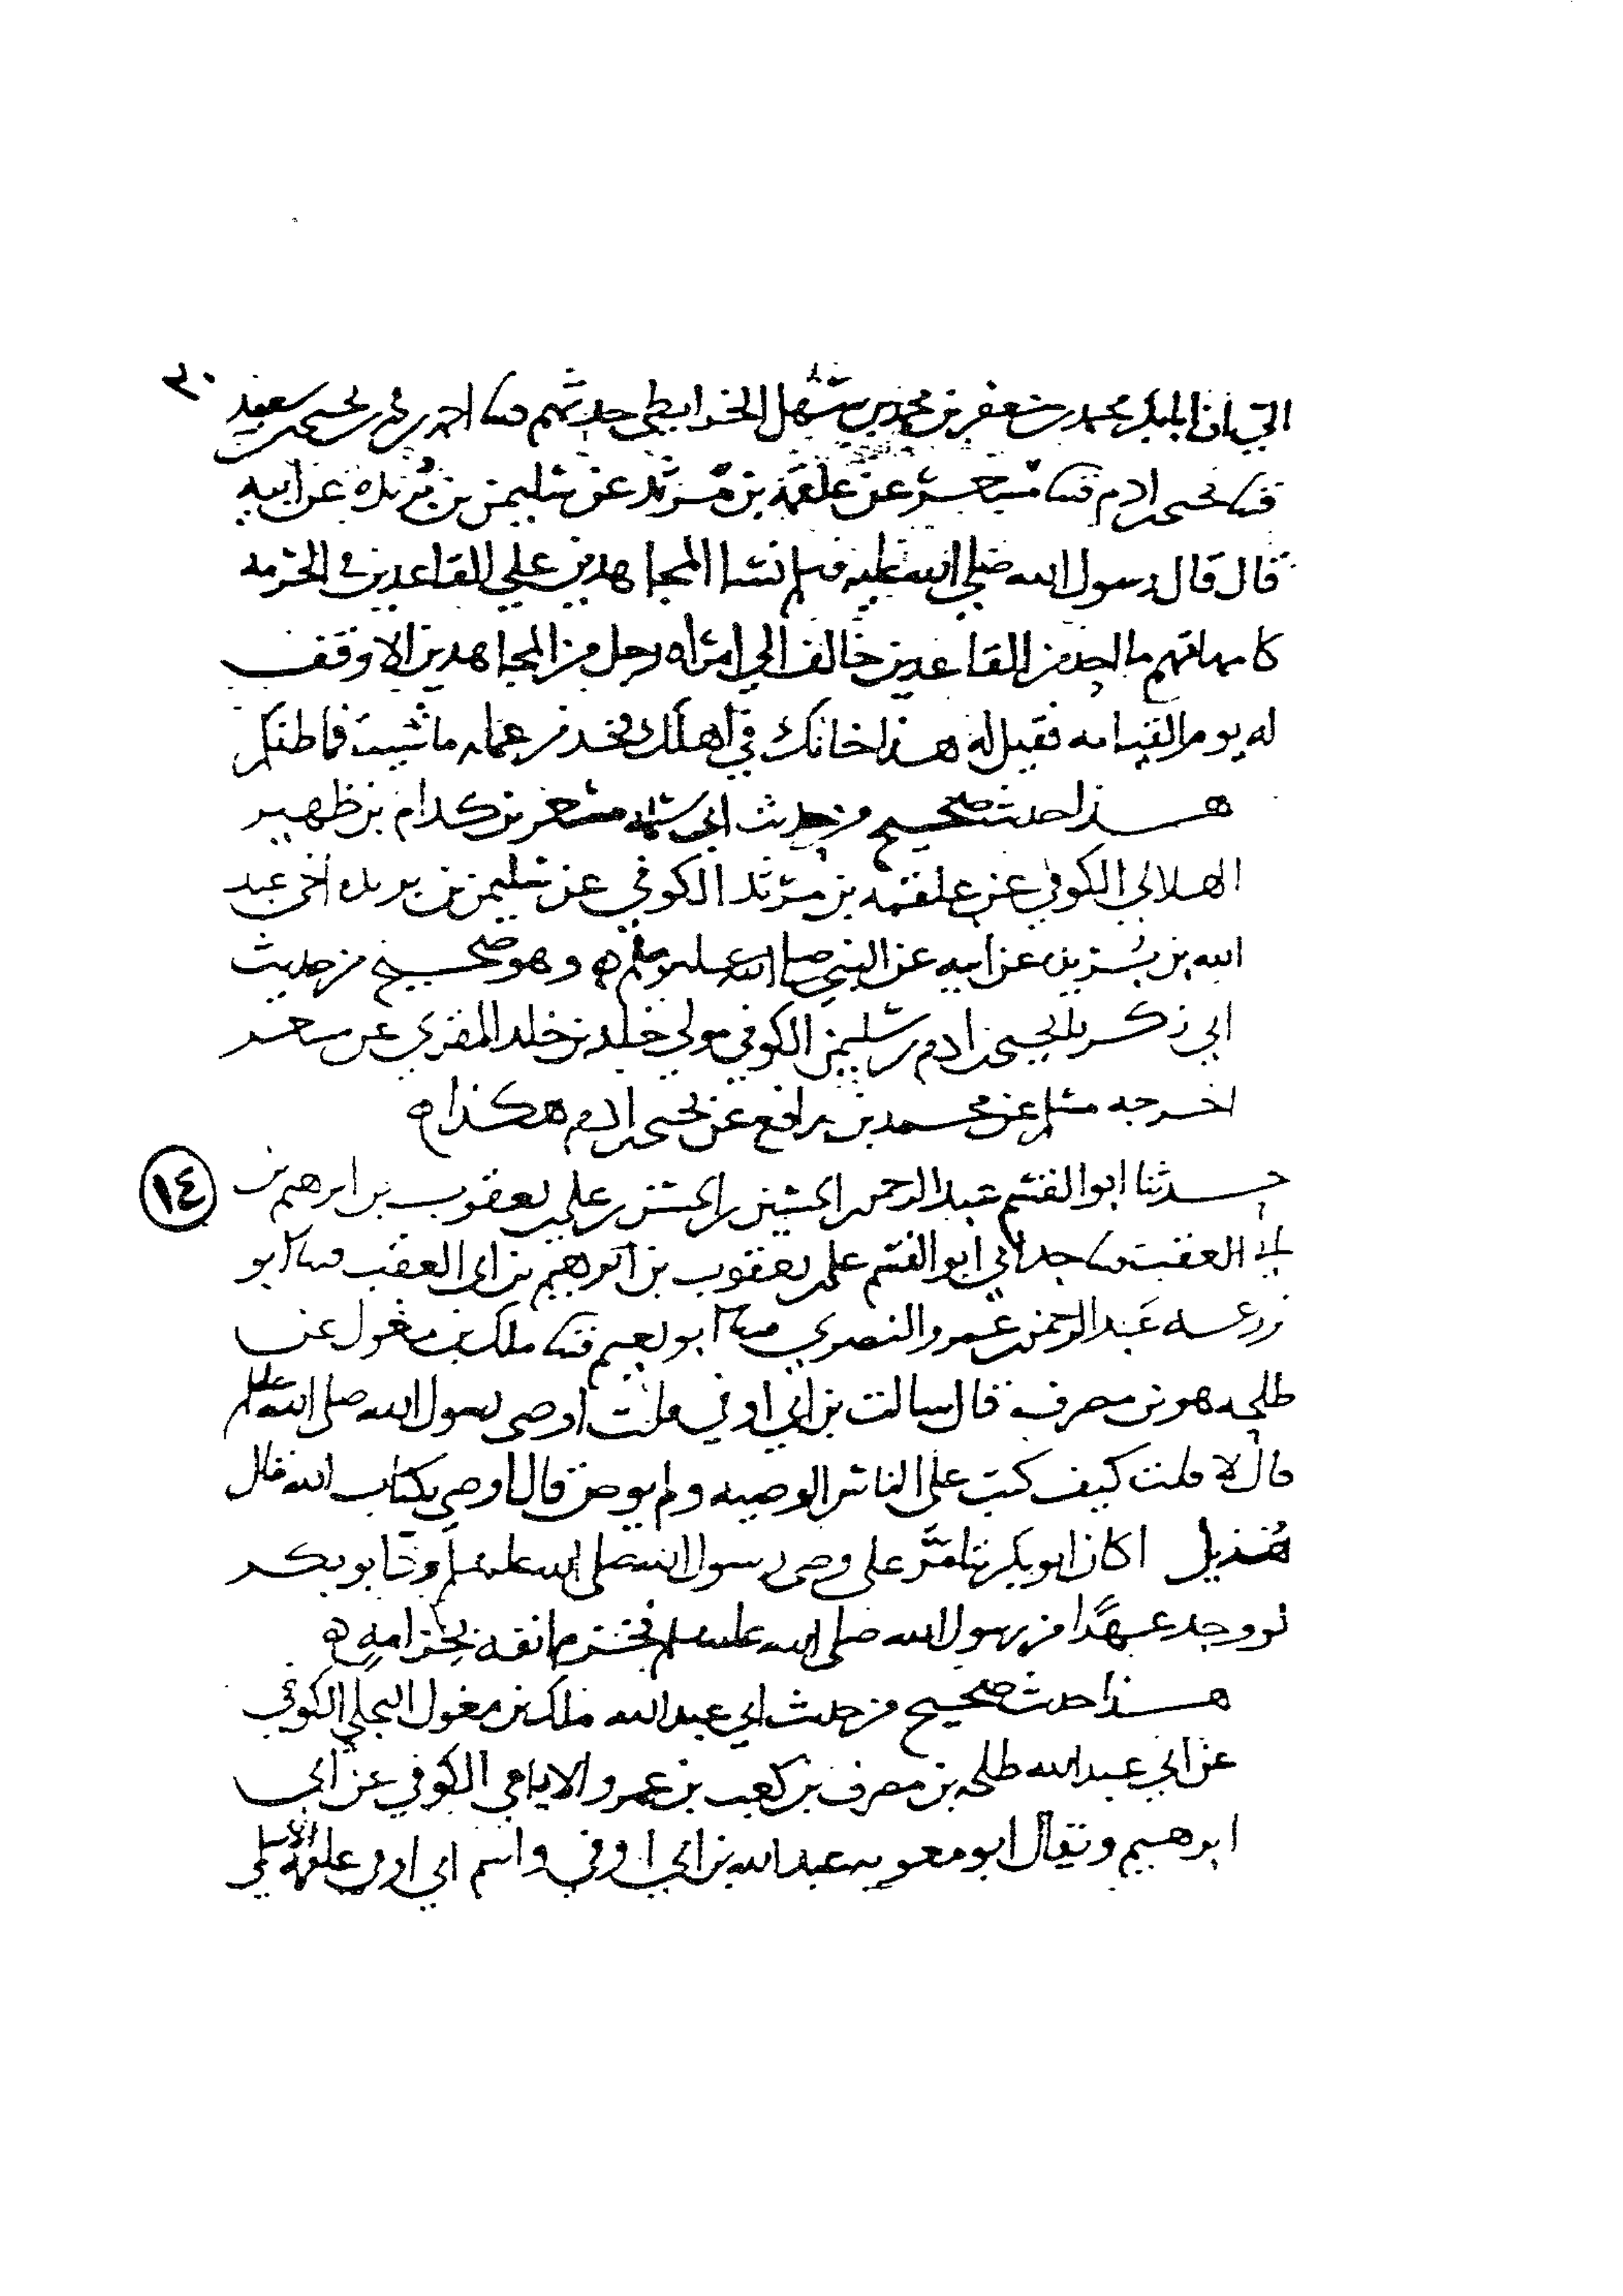 ابا بكر محمد بن جعفر بن محمد بن سهل الخرايطي حدثهم احمد بن سعيد
يحيى بن ادم مسعر عن علقمه بن مرثد عن سليمن بن بريده عن ابيه
قال قال رسول الله صلى الله عليه وسلم نسا المجاهدين على القاعدين في الحرمه
كامهاتهم ما احد من القاعدين خالف الى امراه رجل من المجاهدين الا وقف
له يوم القيامه فقيل له هذا خانك في اهلك فخذ من عمله ما شيت فما ظنكم
هذا حديث صحيح من حديث ابي سلمه مسعر بن كدام بن ظهير
الهلالي الكوفي عن علقمه بن مرثد الكوفي عن سليمن بن بريده اخي عبد
الله بن بريده عن ابيه عن النبي صلى الله عليه وسلم ه وهو صحيح من حديث
ابي زكريا يحيى بن ادم بن سليمن الكوفي مولى خلد بن خلد عن مسعر
اخرجه مسلم عن محمد بن رافع عن يحيى بن ادم هكذا ه
١٤
حدثنا ابو القسم عبد الرحمن بن الحسين بن الحسن بن علي بن يعقوب بن ابرهيم بن
ابي العقب جد ابي ابو القسم علي بن يعقوب بن ابرهيم بن ابي العقب ابو
زرعه عبد الرحمن بن عمرو النصري ابو نعيم ملك بن مغول عن
طلحه هو بن مصرف قال سالت بن ابي اوفى قلت اوصى رسول الله صلى الله عليه وسلم
قال لا قلت كيف كتب على الناس الوصيه ولم يوص قال اوصى بكتاب الله قال
هذيل اكان ابو بكر يتامر على وصي رسول الله صلى الله عليه وسلم ود ابو بكر
لو وجد عهدا من رسول الله صلى الله عليه وسلم فخزم انفه بخزامه ه
هذا حديث صحيح من حديث ابي عبد الله ملك بن مغول البجلي الكوفي
عن ابي عبد الله طلحه بن مصرف بن كعب بن عمرو الايامي الكوفي عن ابي
ابرهيم ويقال ابو معويه عبد الله بن ابي اوفى واسم ابي اوفى علقمه الاسلمي